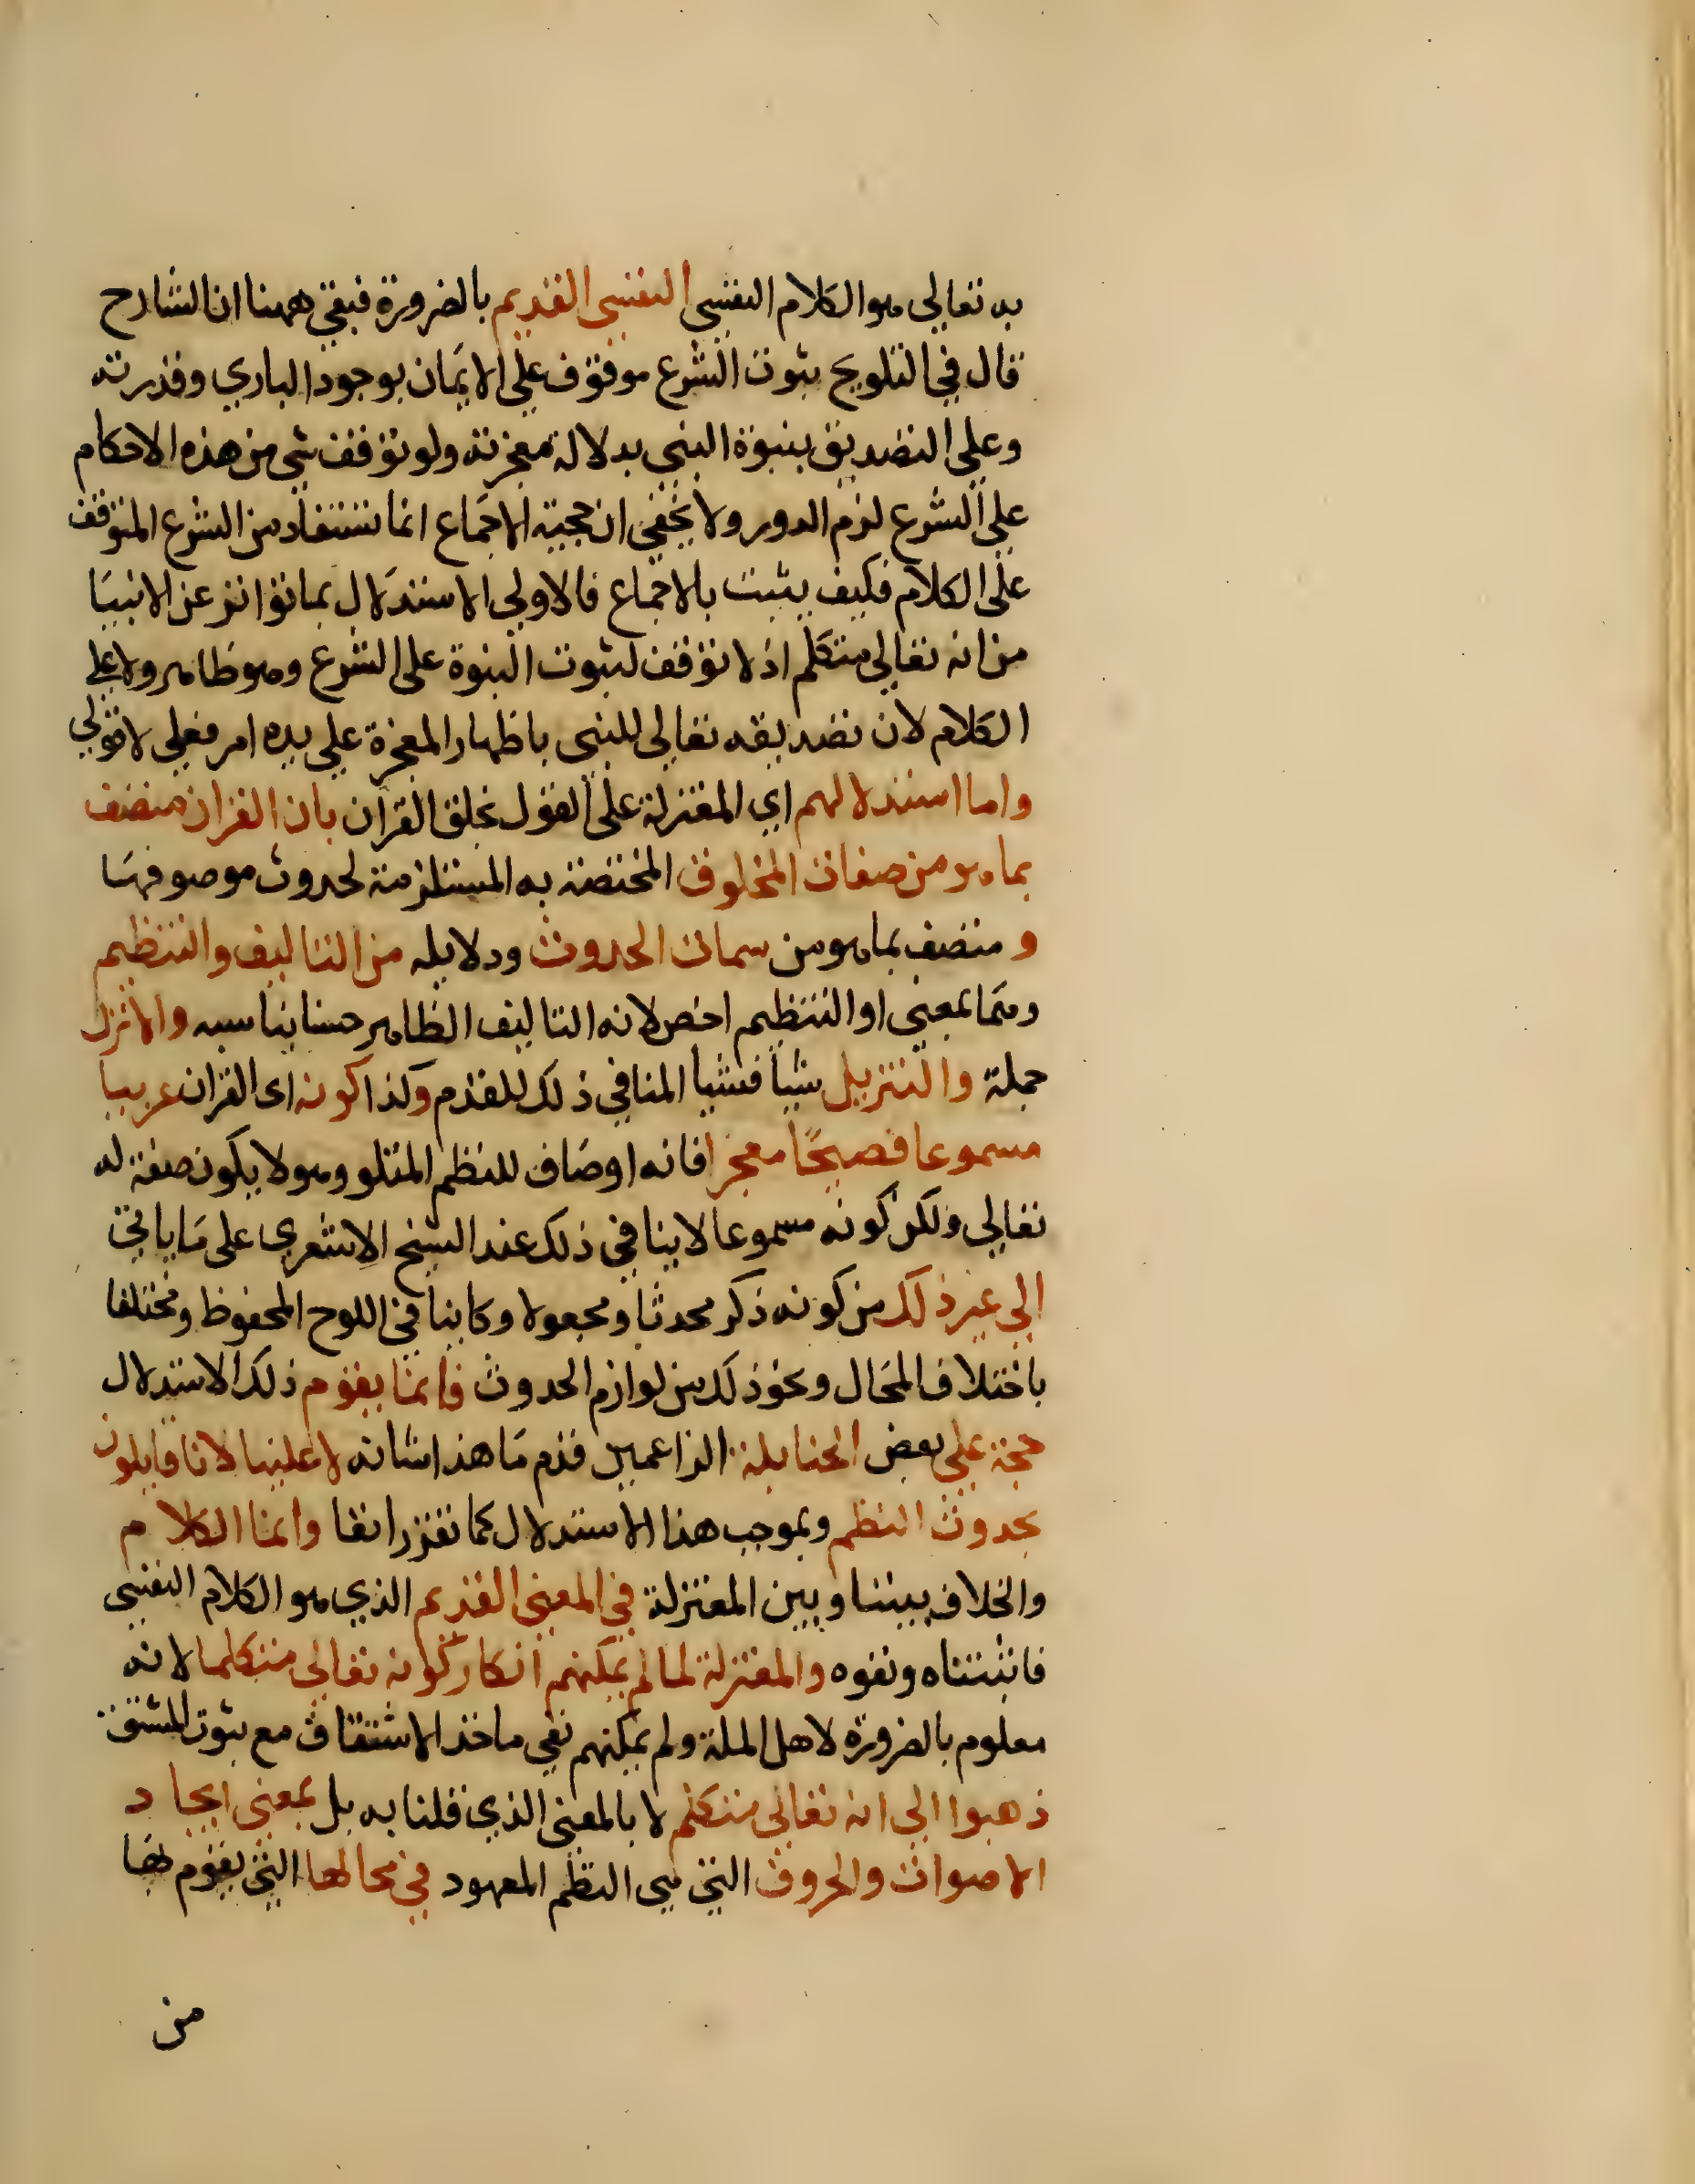 به تعالى هو الكلام النفسي النفسي القديم بالضرورة فبقي ههنا ان الشارح
قال في التلويح ثبوت الشرع موقوف على الايمان بوجود الباري وقدرته
وعلى التصديق بنبوة النبي بدلالة معجزته ولو توقف شي من هذه الاحكام
على الشرع لزم الدور ولا يخفى ان حجية الاجماع انما تستفاد من الشرع المتوقف
على الكلام فكيف يثبت بالاجماع فالاولى الاستدلال بما تواتر عن الانبيا
من انه تعالى متكلم اذ لا توقف لثبوت النبوة على الشرع وهو ظاهر ولا على
الكلام لان تصديقه تعالى للنبي باظهار المعجزة على يده امر فعلي لا قولي
واما استدلالهم اي المعتزلة على القول بخلق القرآن بان القران متصف
بما هو من صفات المخلوق المختصة به المستلزمة لحدوث موصوفها
و متصف بما هو من سمات الحدوث ودلايله من التاليف والتنظيم
وهما بمعنى او التنظيم اخص لانه التاليف الظاهر حسنا يناسبه والانزل
جملة والتنزيل شيا فشيا المنافي ذلك للقدم وكذا كونه اى القران عربيا
مسموعا فصيحًا معجزا فانه اوصاف للنظم المتلو وهو لا يكون صفة له
تعالى ولكن كونه مسموعا لا ينافي ذلك عند الشيخ الاشعري على ما ياتي
الى غير ذلك من كونه ذكر محدثا ومجعولا وكاينا في اللوح المحفوظ ومختلفا
باختلاف المحال ونحو ذلك من لوازم الحدوث فانما يقوم ذلك الاستدلال
حجة على بعض الحنابلة الزاعمين قدم ما هذا شانه لا علينا لانا قايلون
بحدوث النظم وبموجب هذا الاستدلال كما تقرر انفا وانما الكلام
والخلاف بيننا وبين المعتزلة في المعنى القديم الذي هو الكلام النفسي
فاثبتناه ونفوه والمعتزلة لما لم يمكنهم انكار كونه تعالى متكلما لانه
معلوم بالضرورة لاهل الملة ولم يمكنهم نفي ماخذ الاشتقاق مع ثبوت المشتق
ذهبوا الى انه تعالى متكلم لا بالمعنى الذي قلنا به بل بمعنى ايجاد
الاصوات والحروف التي هي النظم المعهود في محالها التي يقوم بها
من